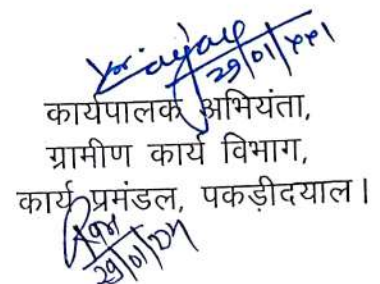 29/01/
कार्यपालक अभियंता,
ग्रामीण कार्य विभाग,
कार्य प्रमंडल, पकड़ीदयाल।
29/01/